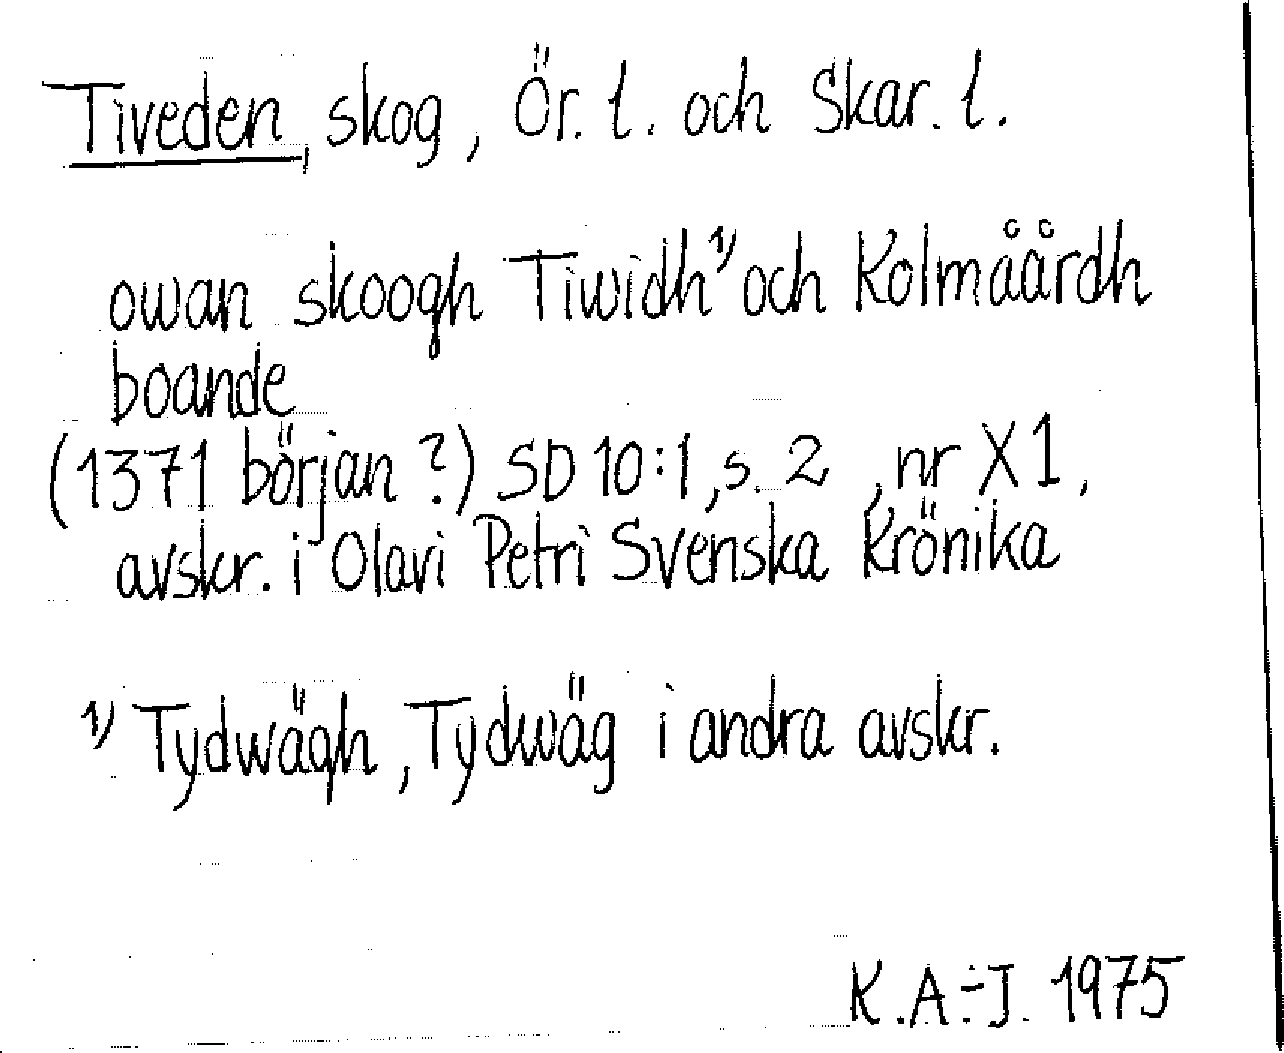 Tiveden, skog, Ör. l. och Skar. l.
owan skoogh Tiwidh¹⁾ och Kolmåårdh
boande
(1371 början ?) SD 10:1, s. 2, nr X1,
avskr. i Olavi Petri Svenska Krönika
¹⁾ Tydwägh, Tydwäg i andra avskr.
K.A.-J. 1975